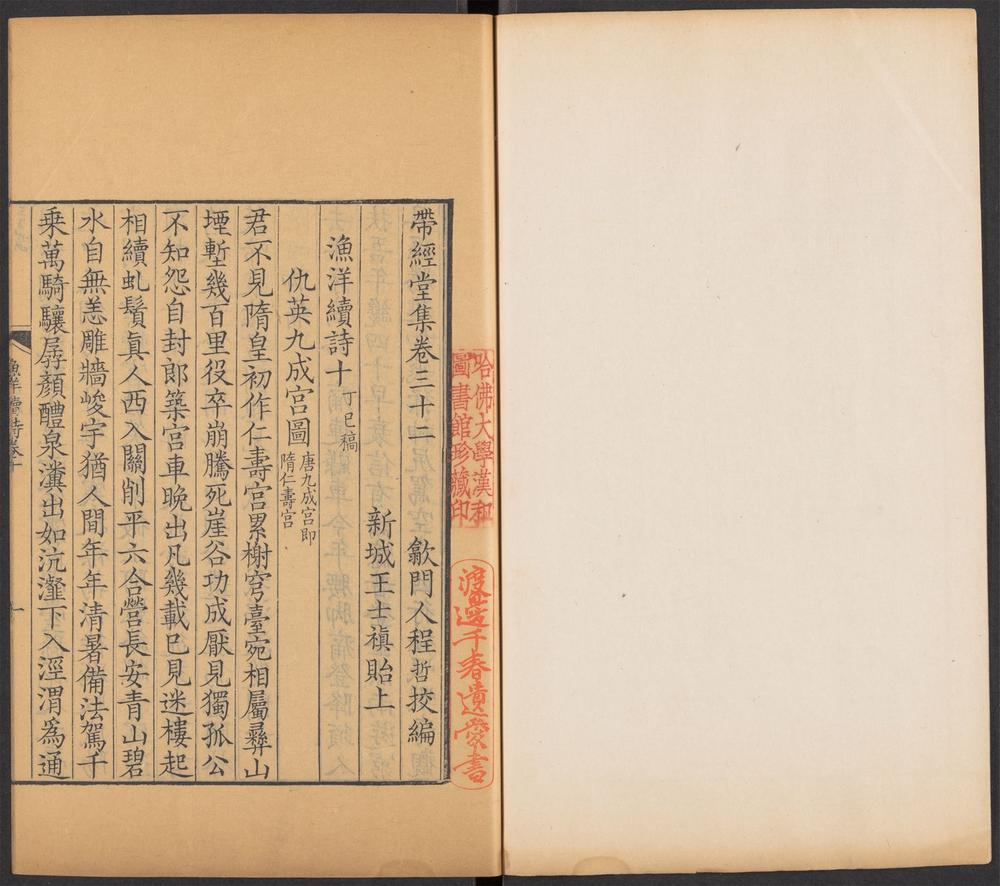 帶經堂集卷三十二　歙門人程哲挍編
新城王士禛貽上
漁洋續詩十 丁巳稿
仇英九成宮圖 唐九成宮即
隋仁壽宮
君不見隋皇初作仁壽宮累榭穹臺宛相屬彞山
堙塹幾百里役卒崩騰死崖谷功成厭見獨孤公
不知怨自封郎築宮車晚出凡幾載已見迷樓起
相續虬鬚真人西入關削平六合營長安青山碧
水自無恙雕牆峻宇猶人間年年清暑備法駕千
乘萬騎驤孱顏醴泉瀵出如沆瀣下入涇渭為通
漁洋續詩卷十
十
哈佛大學漢和
圖書館珍藏印
渡邊千春遺愛書